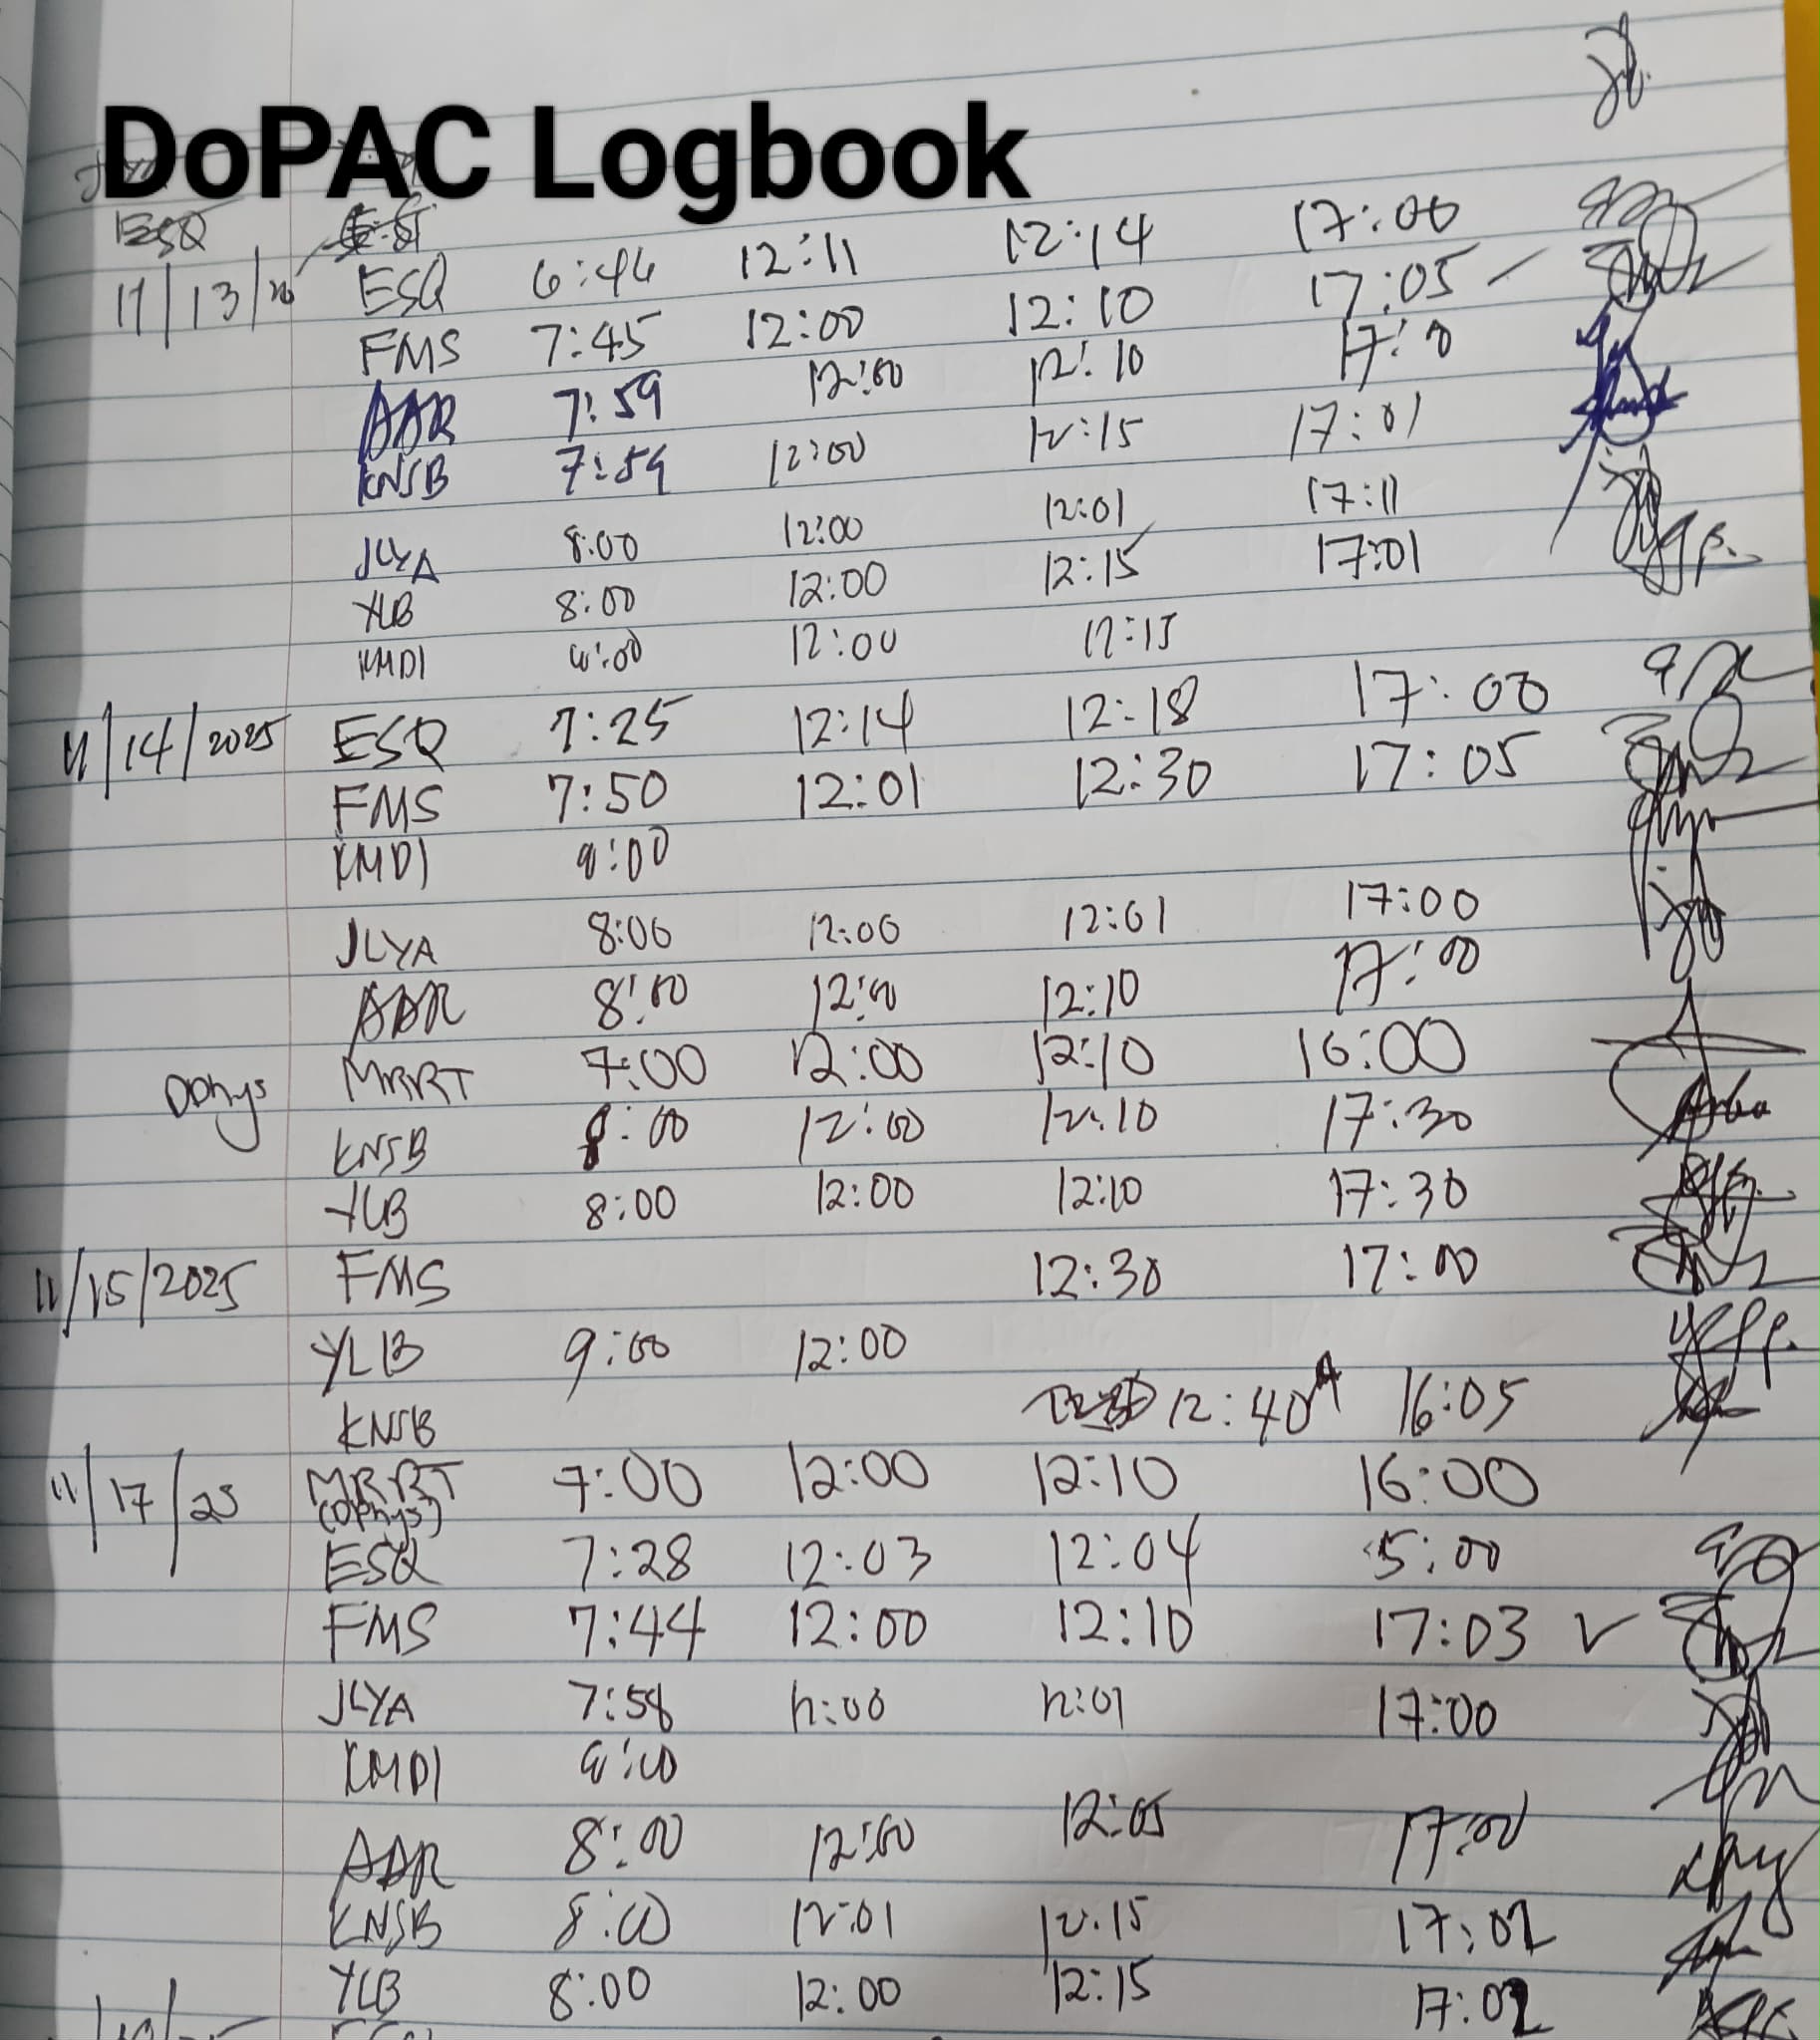 DoPAC Logbook
ESQ
11/13/ ESQ 6:46 12:11 12:14 17:00
FMS 7:45 12:00 12:10 17:05
AAR 7:59 12:00 12:10 17:0
KNSB 7:59 12:00 12:15 17:01
JLYA 8:00 12:00 12:01 17:11
YLB 8:00 12:00 12:15 17:01
KMDI 8:00 12:00 12:15
11/14/2025 ESQ 7:25 12:14 12:18 17:00
FMS 7:50 12:01 12:30 17:05
KMDI 8:00
JLYA 8:00 12:00 12:01 17:00
AAR 8:00 12:00 12:10 17:00
DPhys MRRT 7:00 12:00 12:10 16:00
KNSB 8:00 12:00 12:10 17:30
YLB 8:00 12:00 12:10 17:30
11/15/2025 FMS 12:30 17:00
YLB 9:00 12:00
KNSB 12:40 16:05
11/17/25 MRRT 7:00 12:00 12:10 16:00
(DPhys)
ESQ 7:28 12:03 12:04 5:00
FMS 7:44 12:00 12:10 17:03 ✓
JLYA 7:58 12:00 12:01 17:00
KMDI 8:00
AAR 8:00 12:00 12:05 17:00
KNSB 8:00 12:01 12:15 17:02
YLB 8:00 12:00 12:15 17:02